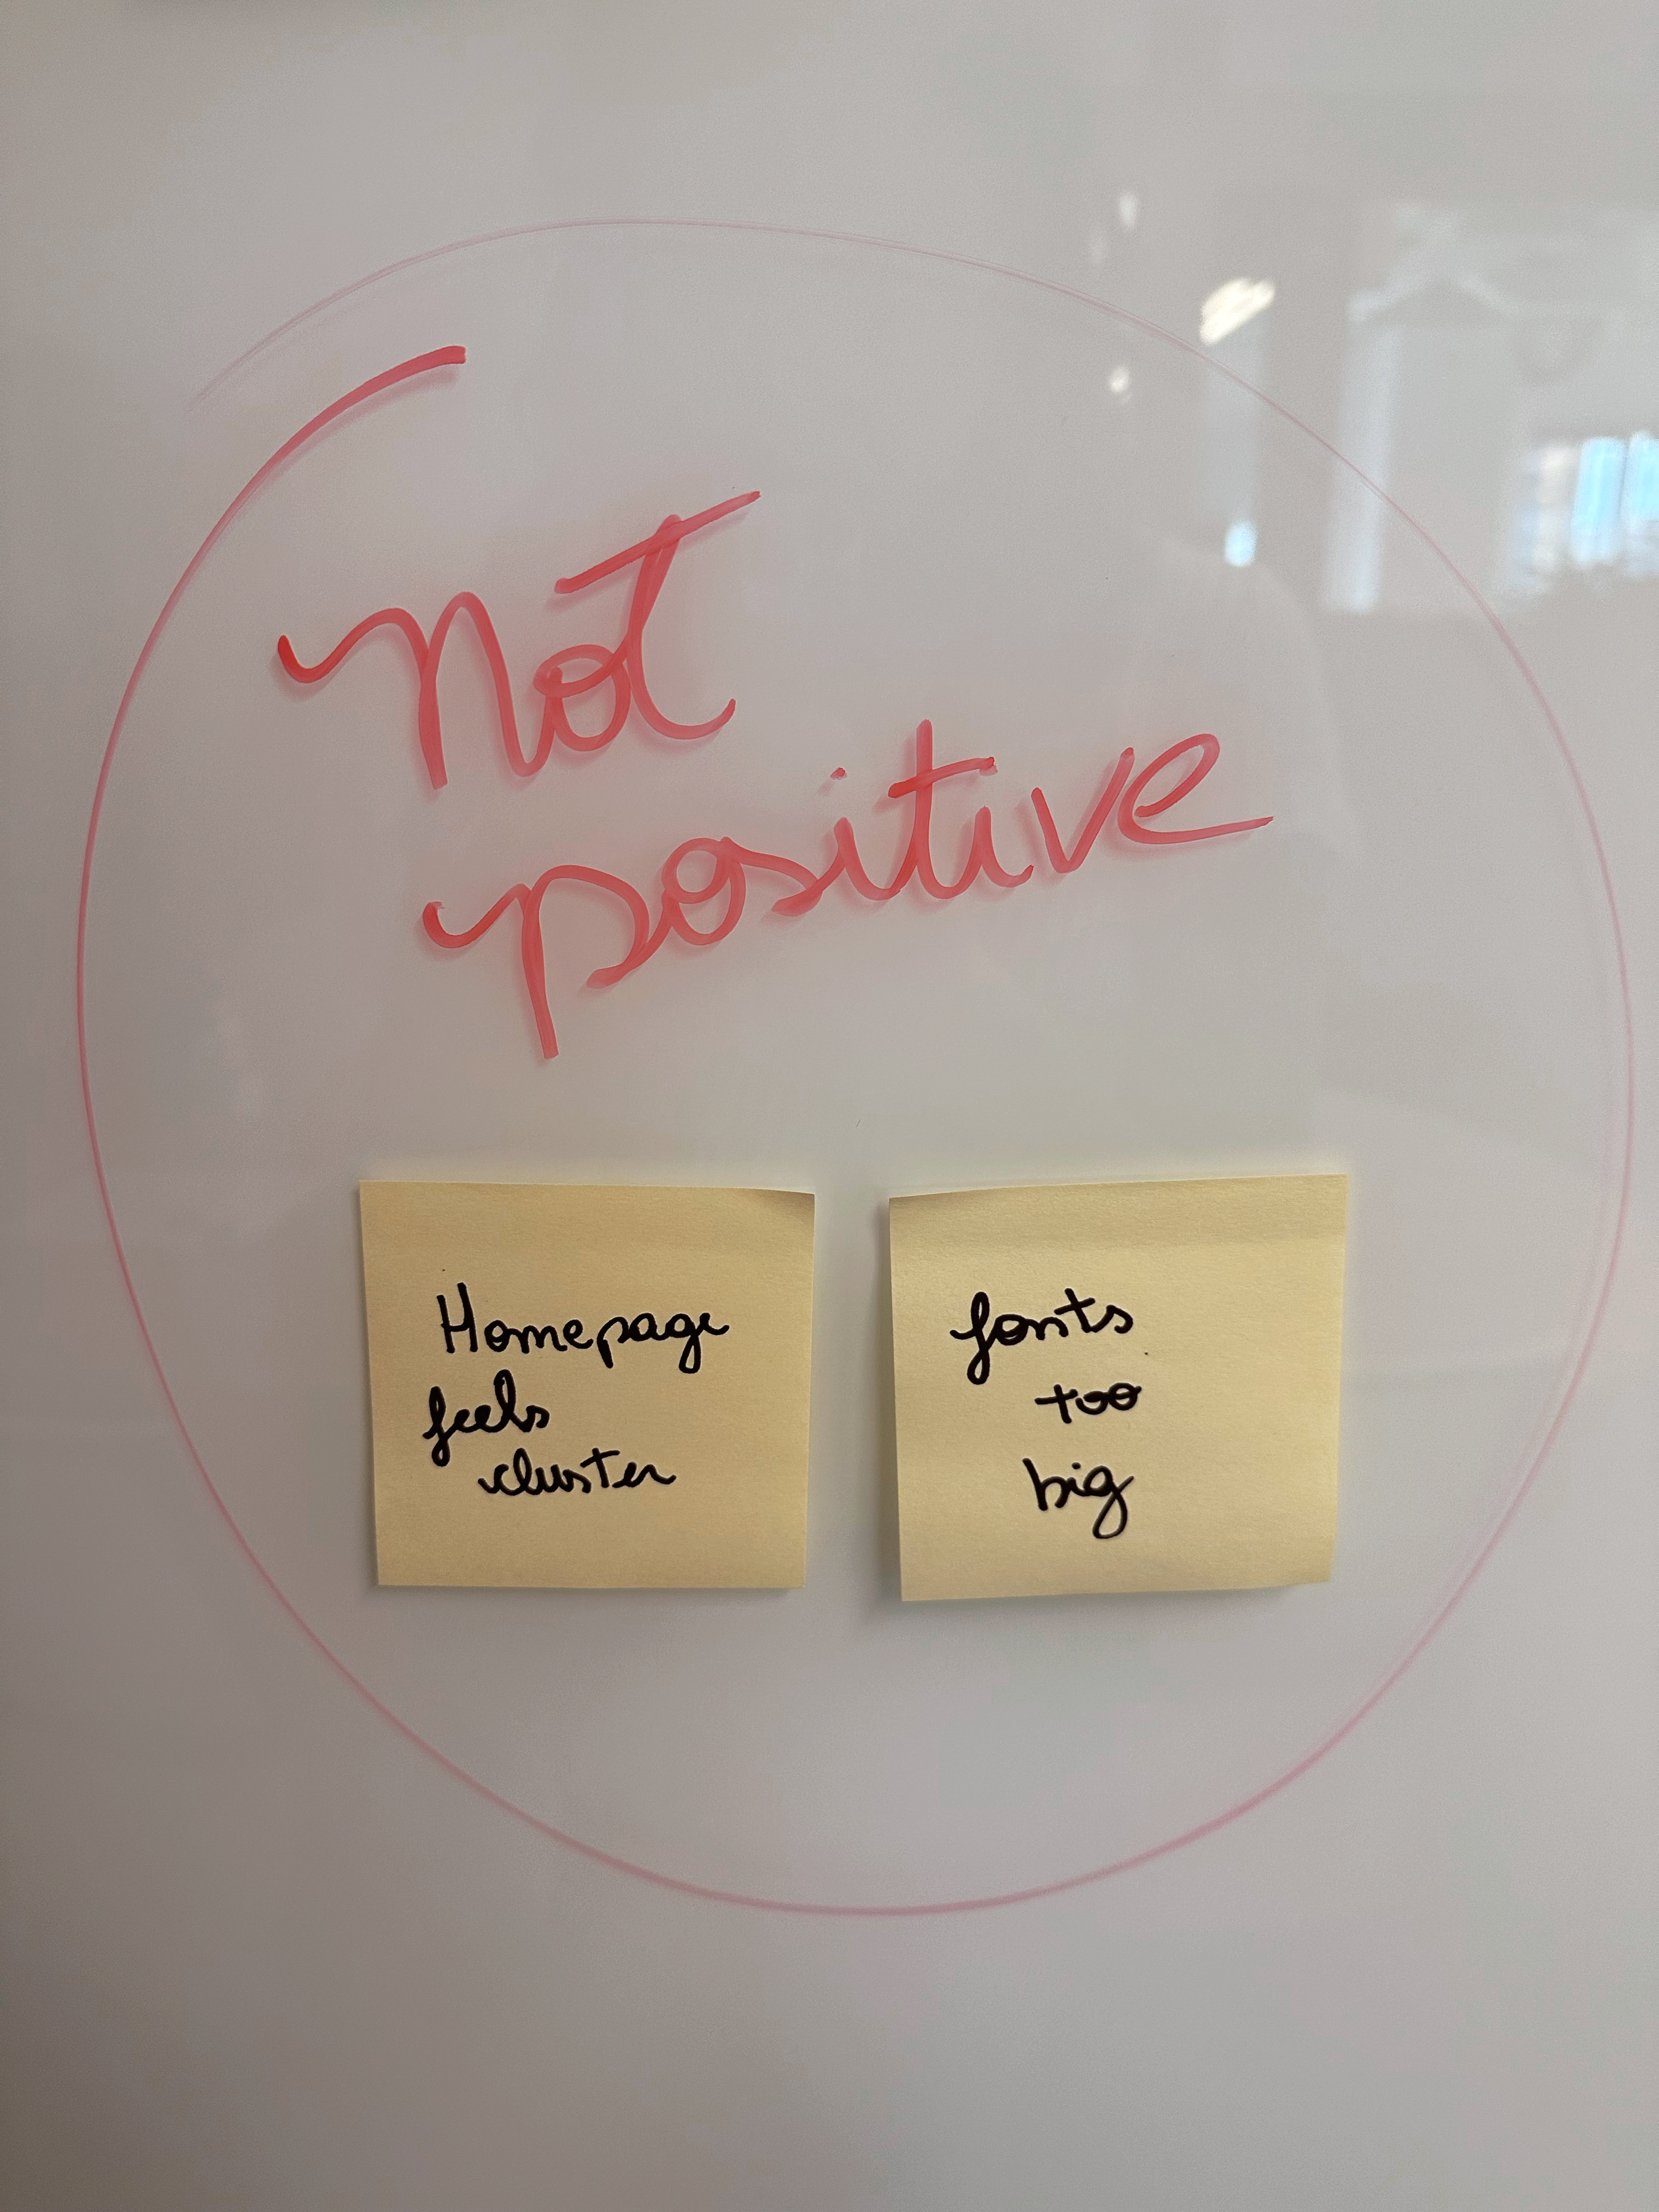 Not
positive
Homepage
feels
cluster
fonts
too
big